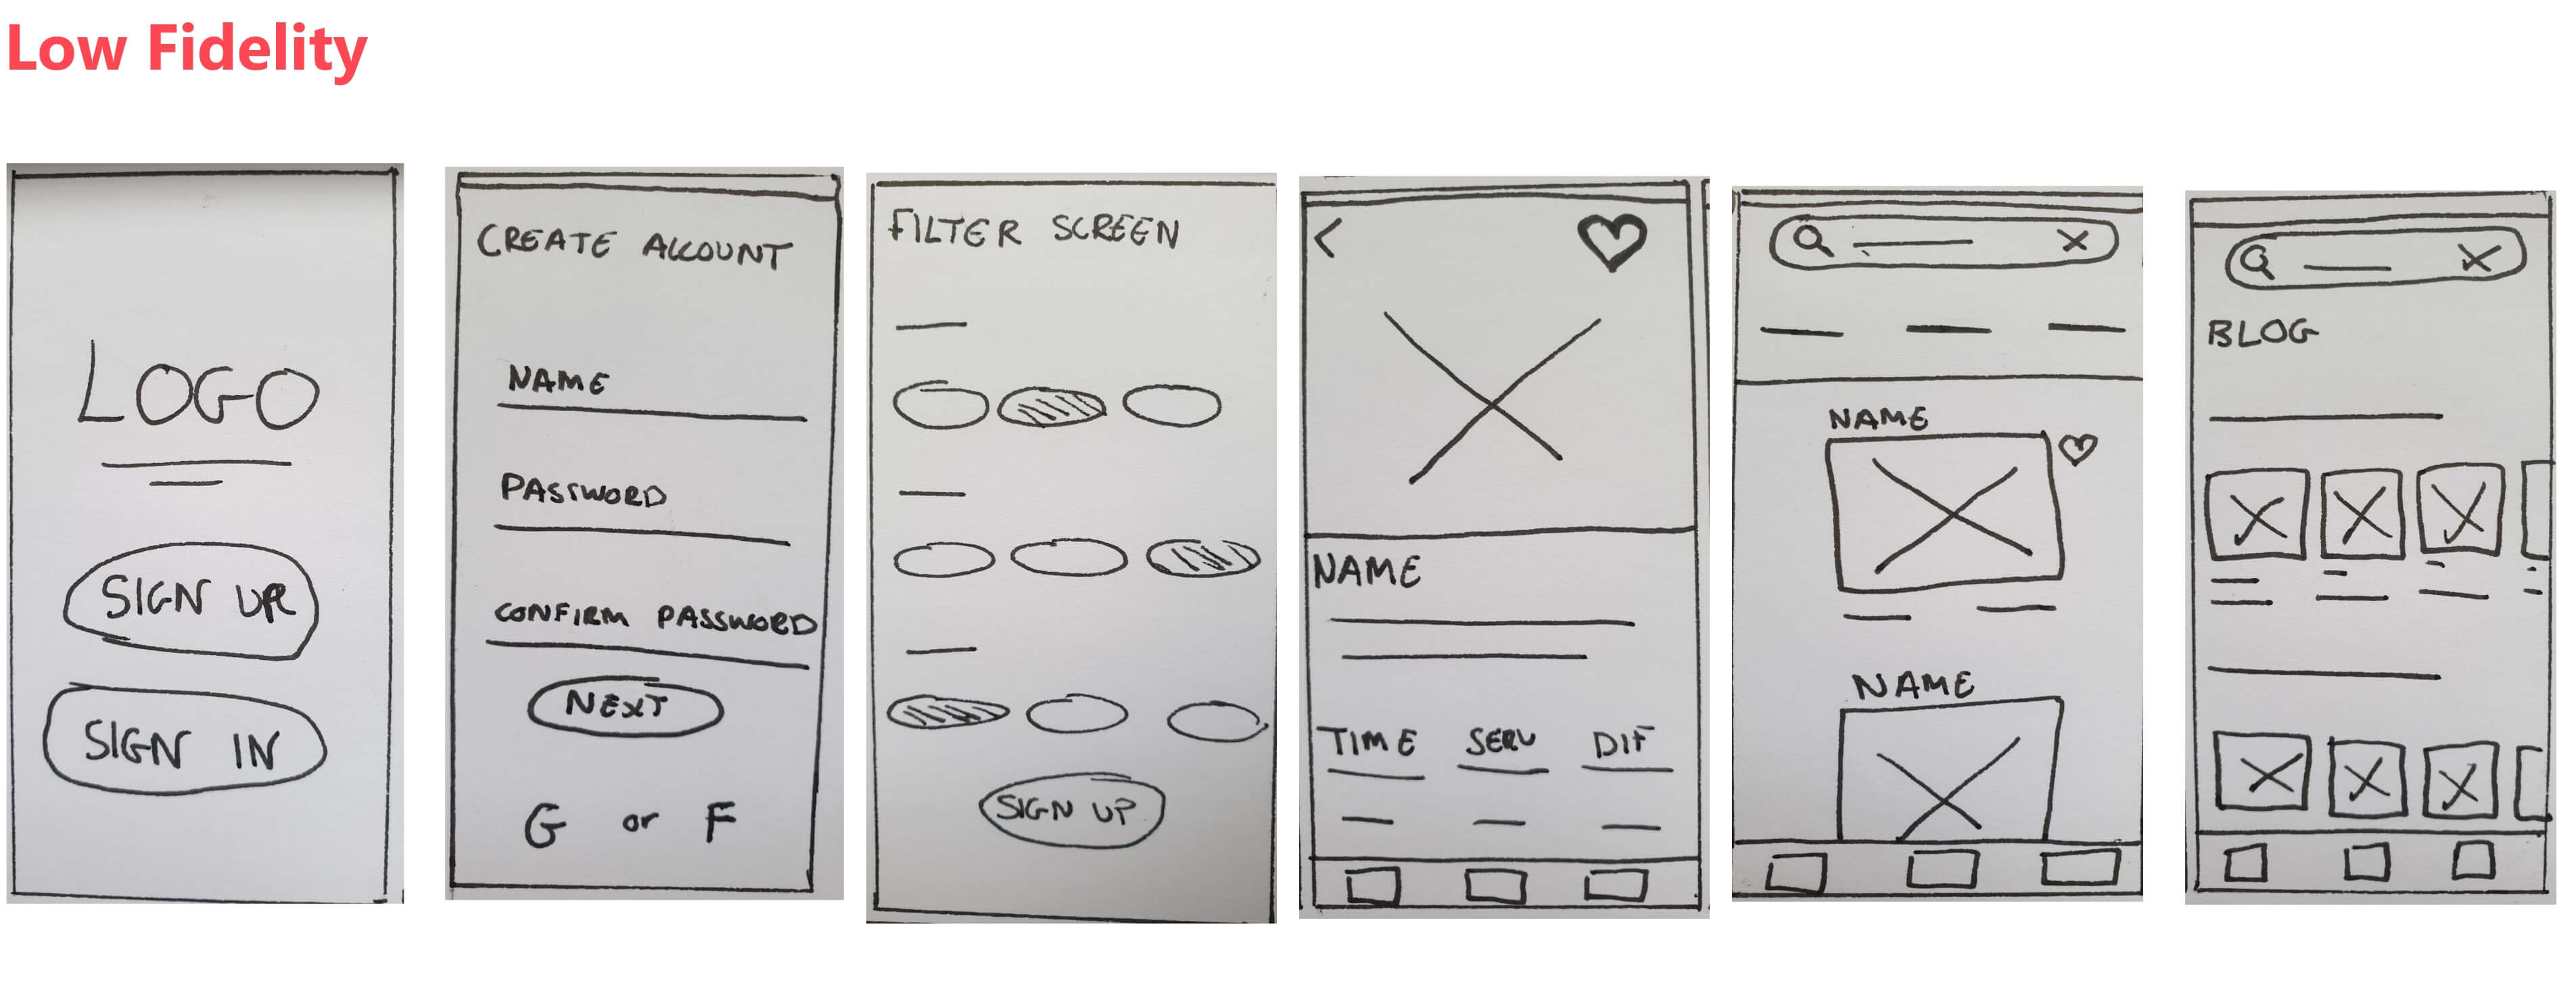 Low Fidelity
LOGO
SIGN UP
SIGN IN
CREATE ACCOUNT
NAME
PASSWORD
CONFIRM PASSWORD
NEXT
G or F
FILTER SCREEN
SIGN UP
NAME
TIME SERV DIF
NAME
NAME
BLOG